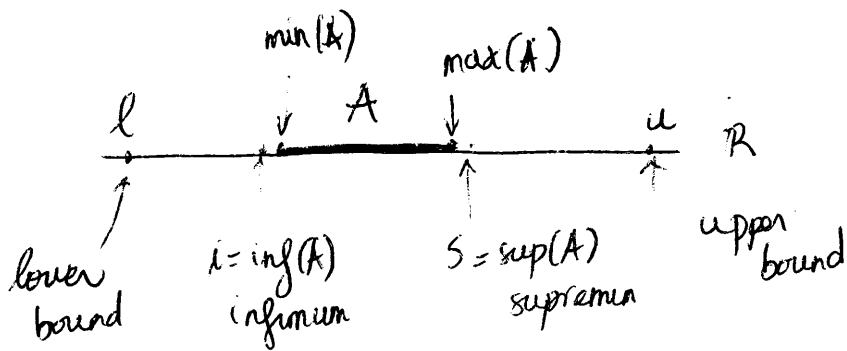 min(A)
max(A)
A
l
u
R
lower
bound
i = inf(A)
infimum
S = sup(A)
supremum
upper
bound